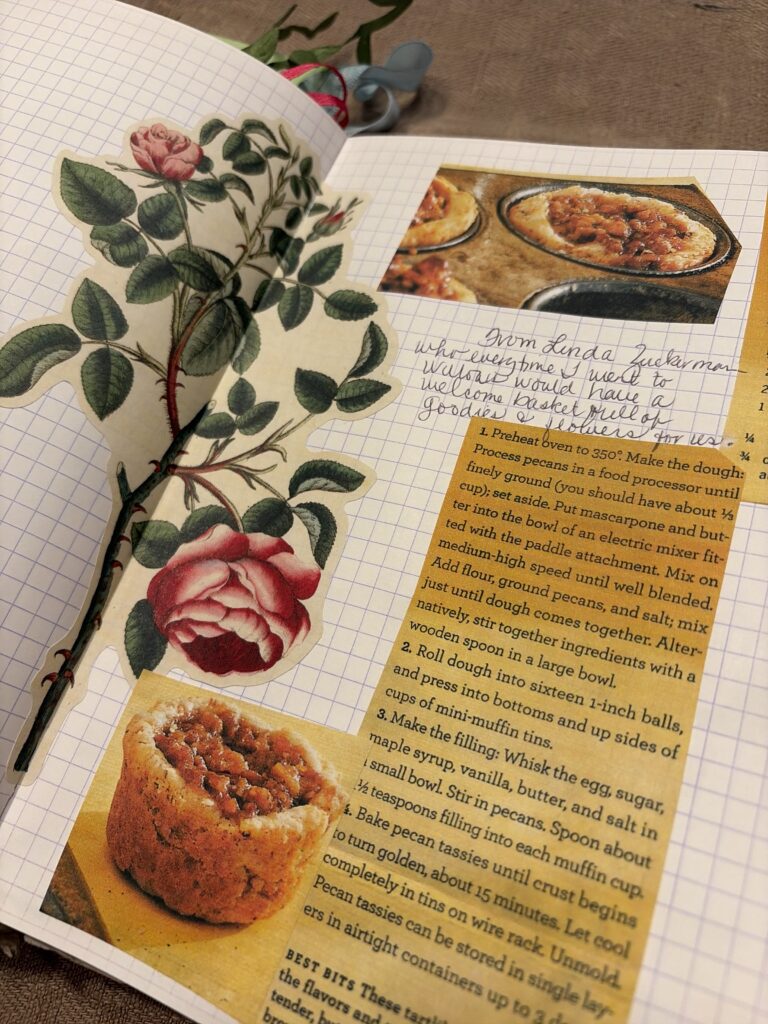 From Linda Zuckerman
who everytime I went to
would have a
welcome basket full of
goodies & flowers for us.
1. Preheat oven to 350°. Make the dough:
Process pecans in a food processor until
finely ground (you should have about ⅓
cup); set aside. Put mascarpone and but-
ter into the bowl of an electric mixer fit-
ted with the paddle attachment. Mix on
medium-high speed until well blended.
Add flour, ground pecans, and salt; mix
just until dough comes together. Alter-
natively, stir together ingredients with a
wooden spoon in a large bowl.
2. Roll dough into sixteen 1-inch balls,
and press into bottoms and up sides of
cups of mini-muffin tins.
3. Make the filling: Whisk the egg, sugar,
maple syrup, vanilla, butter, and salt in
small bowl. Stir in pecans. Spoon about
½ teaspoons filling into each muffin cup.
4. Bake pecan tassies until crust begins
to turn golden, about 15 minutes. Let cool
completely in tins on wire rack. Unmold.
Pecan tassies can be stored in single lay-
ers in airtight containers up to 3 d
BEST BITS These
the flavors and
tender,
2
1
¼
¾